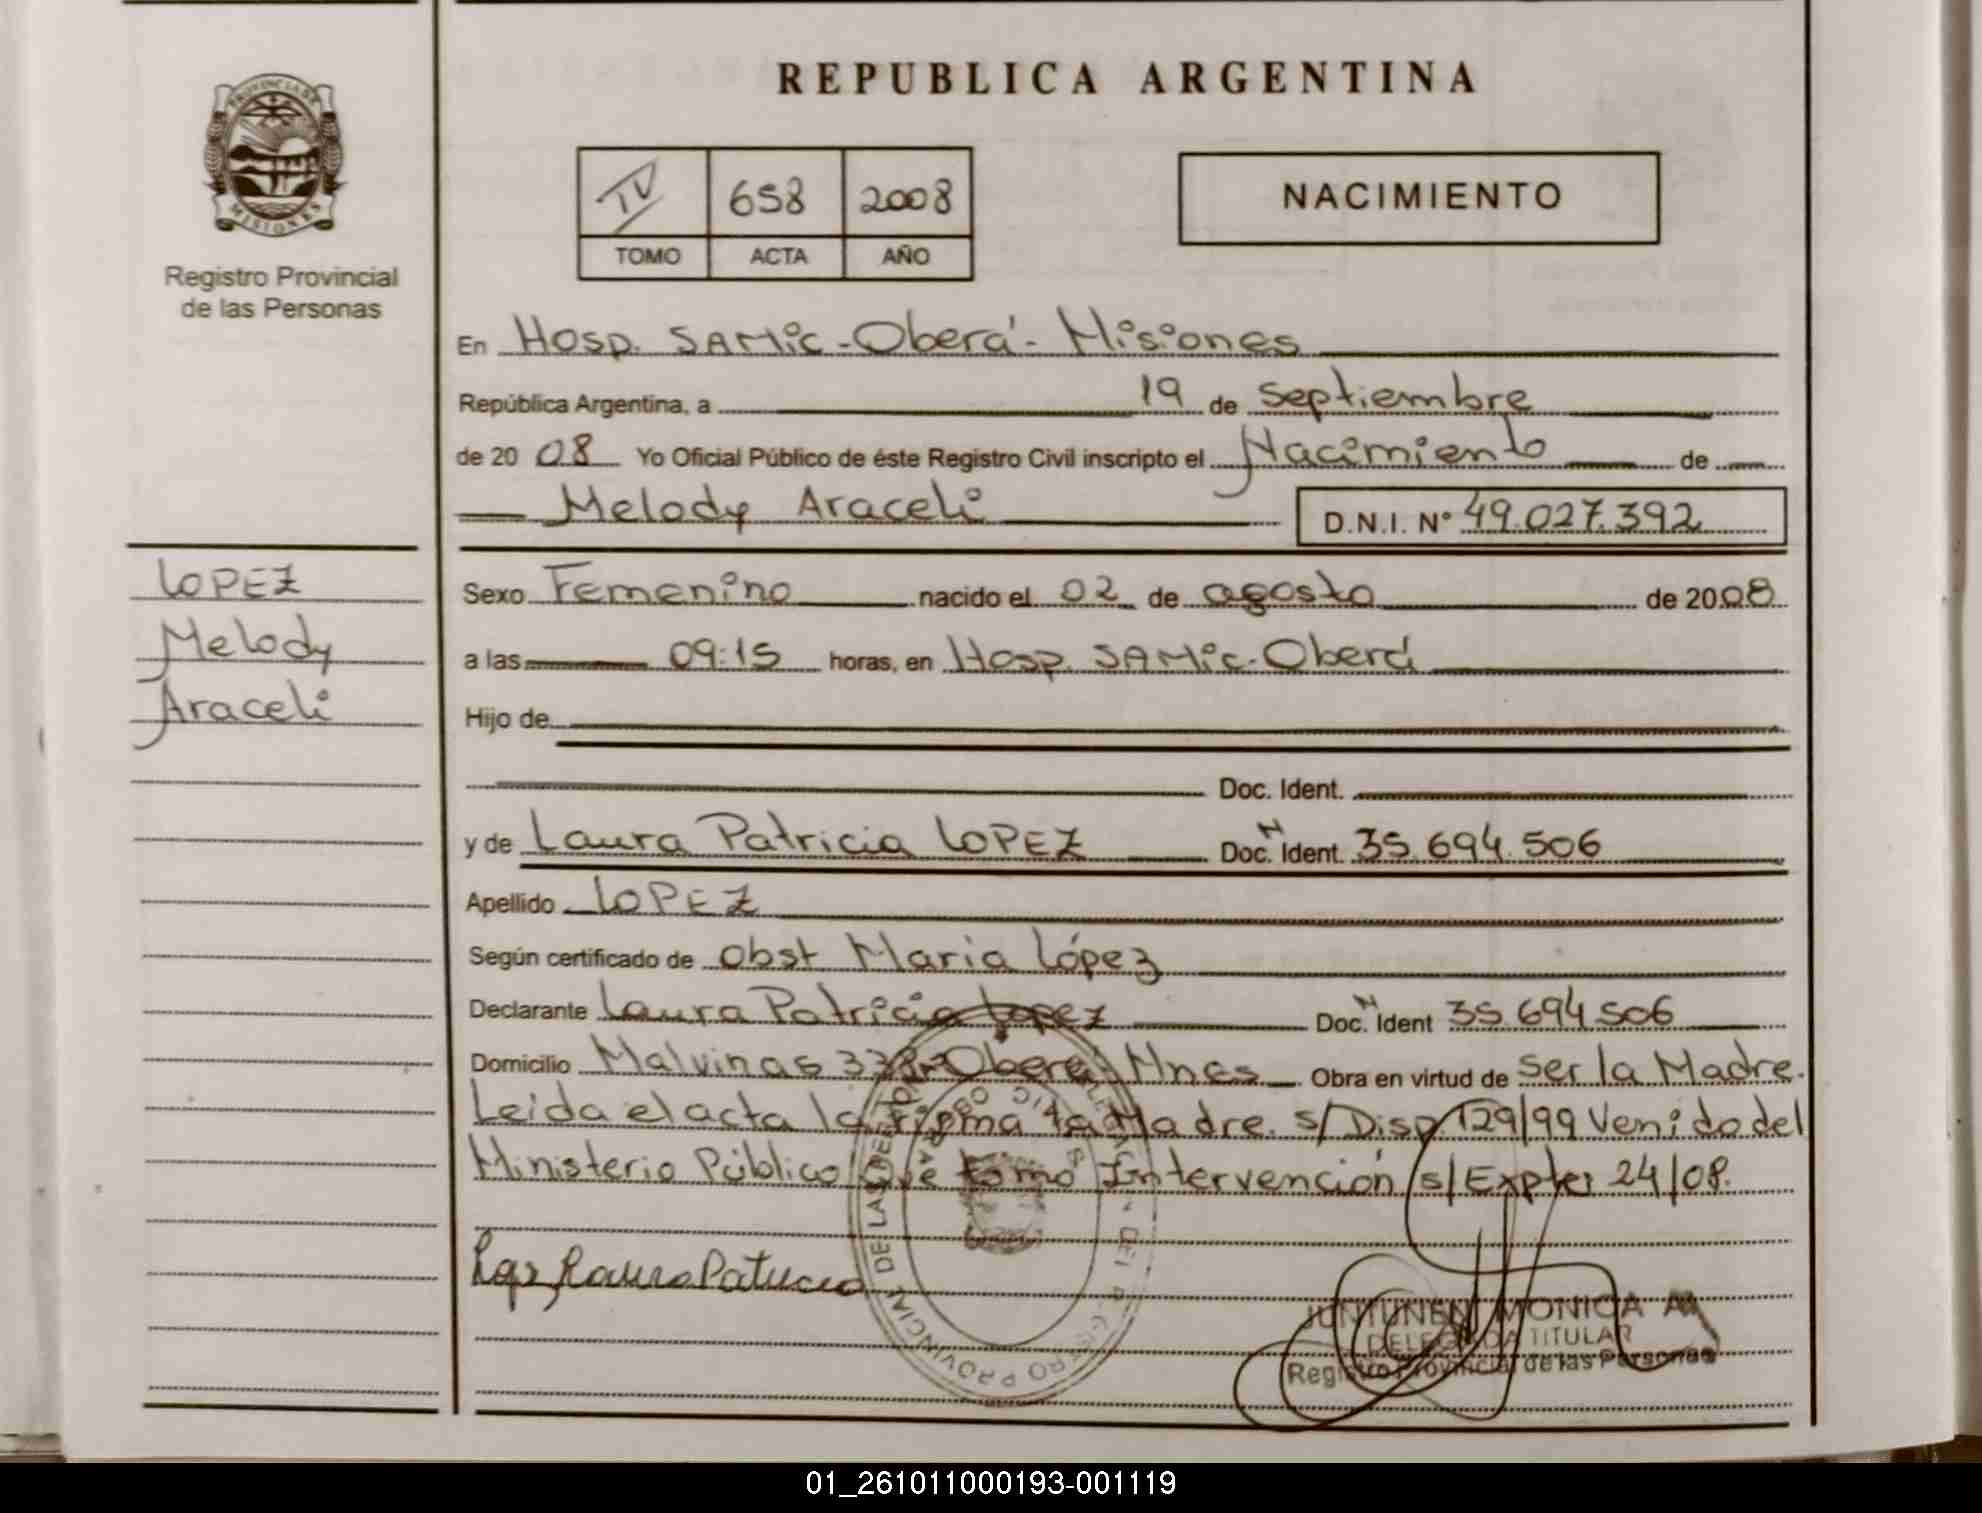 REPUBLICA ARGENTINA
PROVINCIA DE
MISIONES
Registro Provincial
de las Personas
IV 658 2008
TOMO ACTA AÑO
NACIMIENTO
En Hosp. SAMic - Oberá - Misiones
República Argentina, a 19 de septiembre
de 2008 Yo Oficial Público de éste Registro Civil inscripto el Nacimiento de
Melody Araceli D.N.I. N° 49.027.392
LOPEZ
Melody
Araceli
Sexo Femenino nacido el 02 de agosto de 2008
a las 09:15 horas, en Hosp. SAMic - Oberá
Hijo de
Doc. Ident.
y de Laura Patricia LOPEZ Doc. N Ident. 35.694.506
Apellido LOPEZ
Según certificado de Obst Maria López
Declarante Laura Patricia Lopez Doc. N Ident 35.694.506
Domicilio Malvinas Oberá Mnes Obra en virtud de ser la Madre.
Leida el acta la firma la Madre. s/Disp. 129/99 Venido del
Ministerio Público que tomó Intervención s/Expte: 24/08.
Lopez Laura Patricia
JUNTUNEN MONICA A
DELEGADA TITULAR
Registro Provincial de las Personas
REGISTRO PROVINCIAL DE LAS PERSONAS
01_261011000193-001119